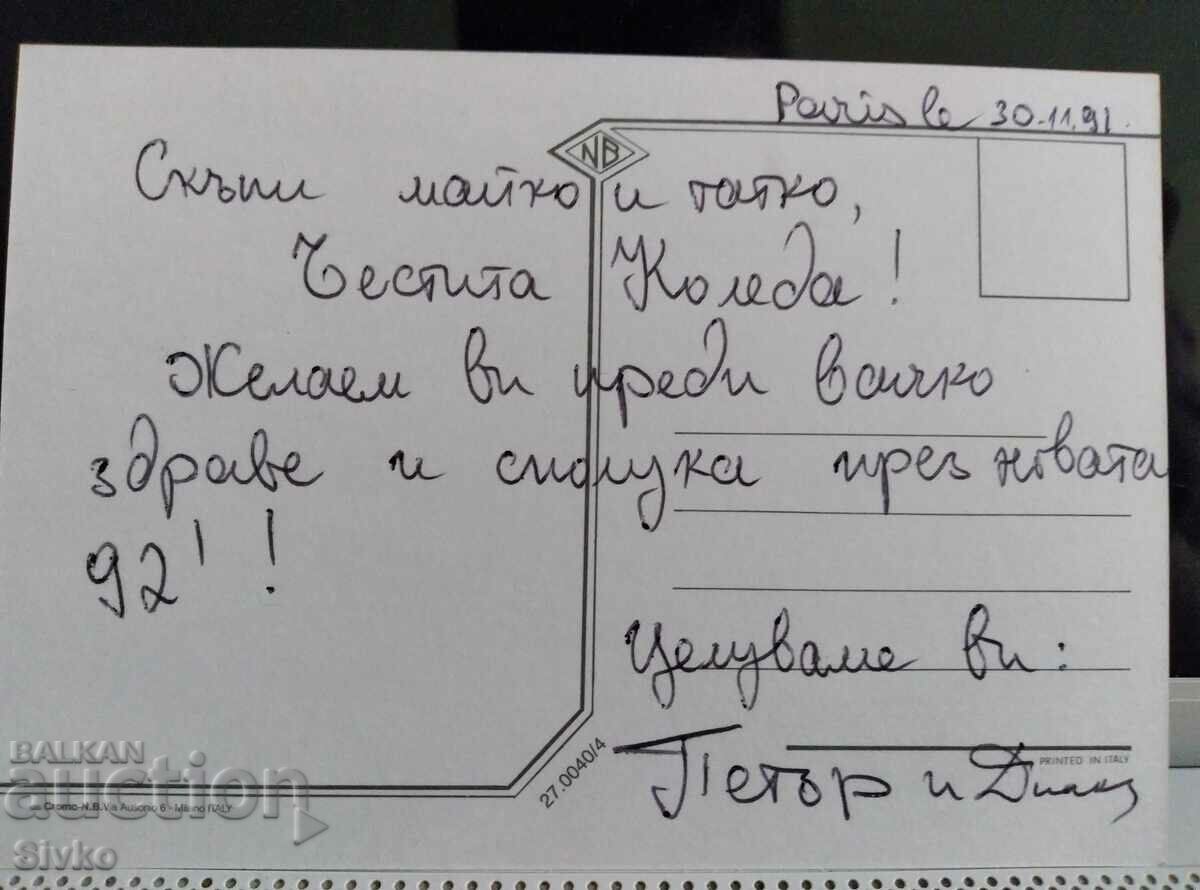 Paris le 30.11.91.
NB
Скъпи майко и татко,
Честита Коледа!
Желаем ви преди всичко
здраве и сполука през новата
92'!
Целуваме ви:
Петър и Диана
PRINTED IN ITALY
27.0040/4
Cromo-N.B. Via Ausonio 6 - Milano ITALY
BALKAN
auction
Sivko